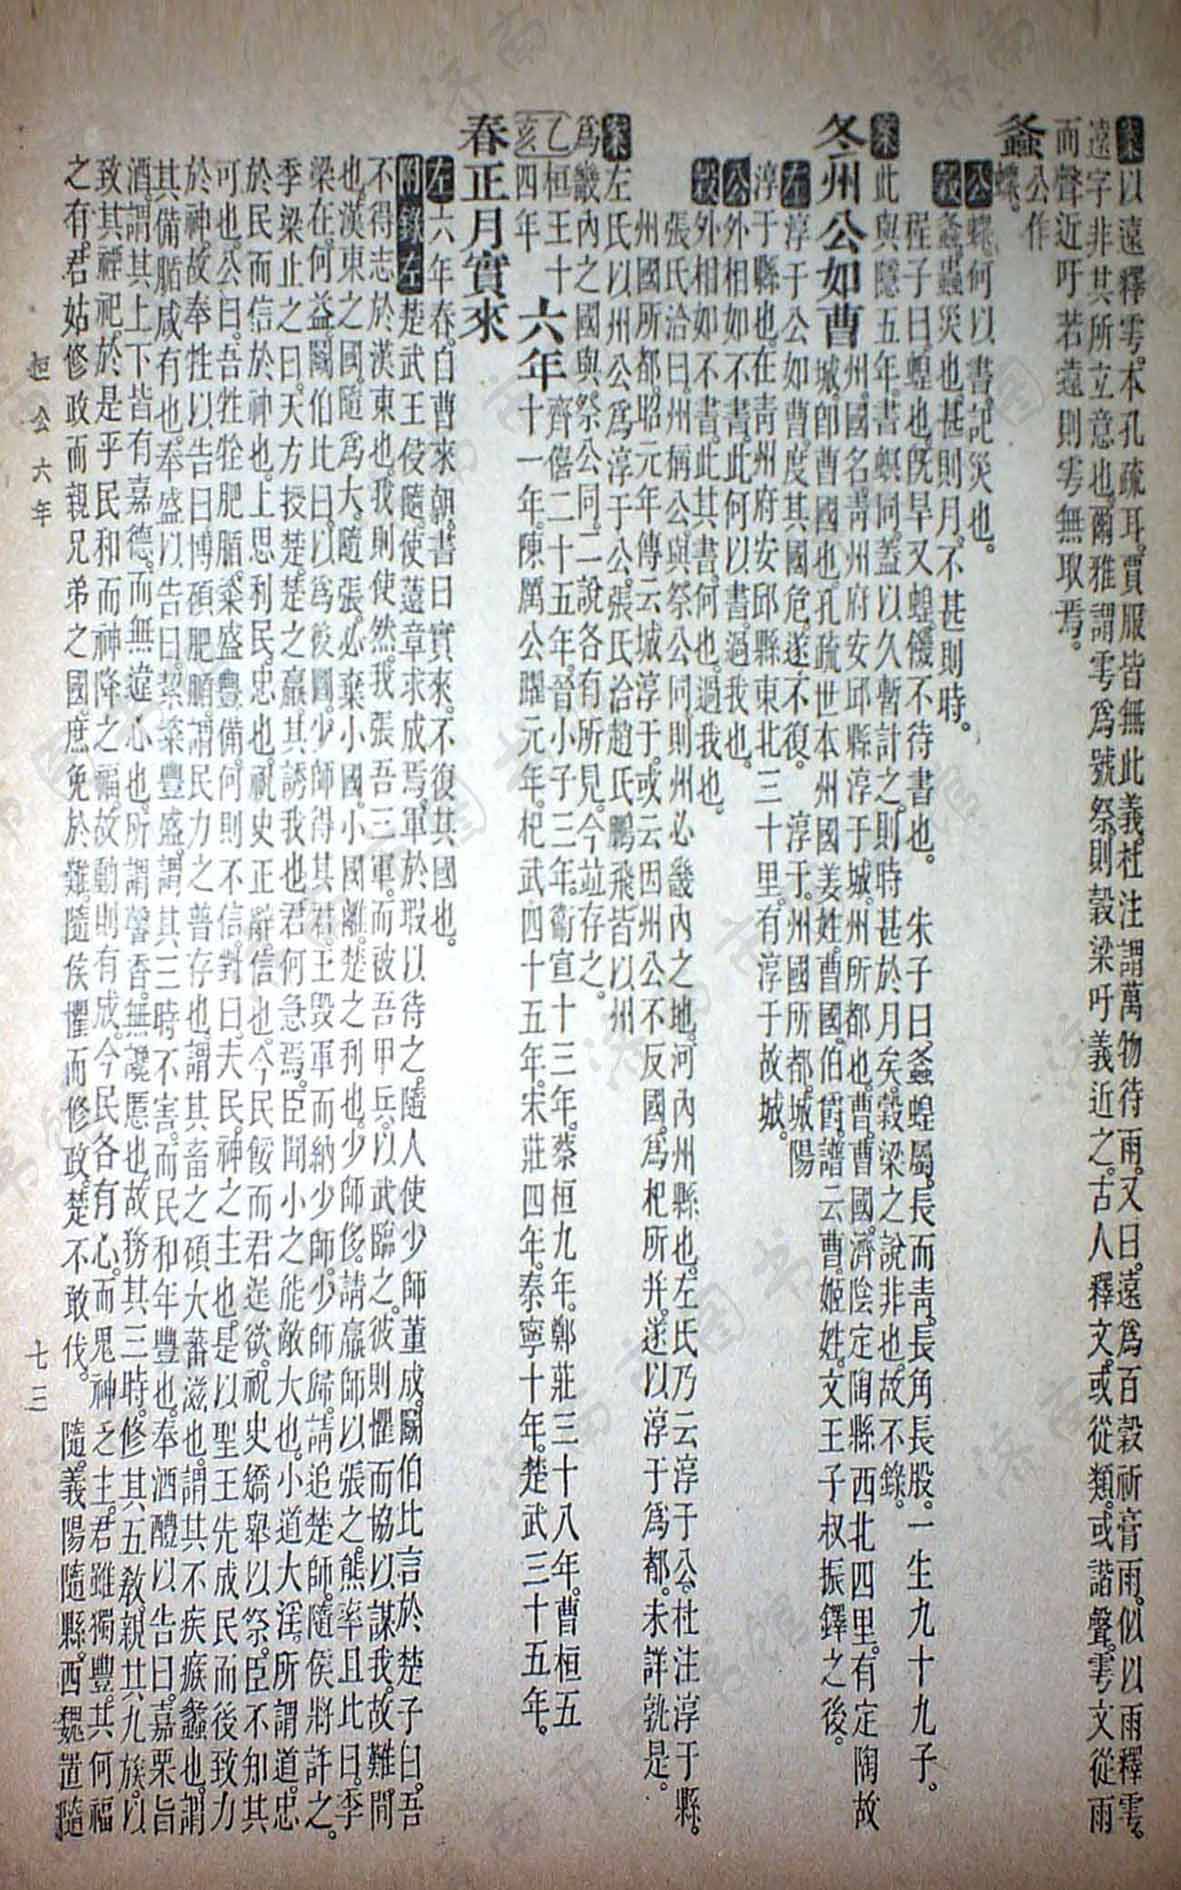 案以遠釋雩。本孔疏耳。賈服皆無此義。杜注謂萬物待雨。又曰。遠爲百穀祈膏雨。似以雨釋雩。
遠字非其所立意也。爾雅謂雩爲號祭。則穀梁吁義近之。古人釋文。或從類。或諧聲。雩文從雨
而聲近吁。若遠則雩無取焉。
螽公作蝝。
公蝝。何以書。記災也。
穀螽。蟲災也。甚則月。不甚則時。
程子曰。蝗也。旣旱又蝗。饑不待書也。 朱子曰。螽。蝗屬。長而靑。長角長股。一生九十九子。
案此與隱五年書螟同。蓋以久暫計之。則時甚於月矣。穀梁之說非也。故不錄。
冬州公如曹州。國名。靑州府安邱縣淳于城。州所都也。曹。曹國。濟陰定陶縣西北四里。有定陶故
城。卽曹國也。孔疏世本州國姜姓。曹國。伯爵。譜云。曹。姬姓。文王子叔振鐸之後。
左淳于公如曹。度其國危。遂不復。 淳于。州國所都。城陽
淳于縣也。在靑州府安邱縣東北三十里。有淳于故城。
公外相如不書。此何以書。過我也。
穀外相如不書。此其書。何也。過我也。
張氏洽曰。州稱公。與祭公同。則州必畿內之地。河內州縣也。左氏乃云淳于公。杜注淳于縣。
州國所都。昭元年傳云城淳于。或云因州公不反國。爲杞所幷。遂以淳于爲都。未詳孰是。
案左氏以州公爲淳于公。張氏洽趙氏鵬飛皆以州
爲畿內之國。與祭公同。二說各有所見。今竝存之。
乙亥桓王十四年六年齊僖二十五年。晉小子三年。衞宣十三年。蔡桓九年。鄭莊三十八年。曹桓五
十一年。陳厲公躍元年。杞武四十五年。宋莊四年。秦寧十年。楚武三十五年。
春正月實來
左六年春。自曹來朝。書曰實來。不復其國也。
附錄左楚武王侵隨。使薳章求成焉。軍於瑕以待之。隨人使少師董成。鬭伯比言於楚子曰。吾
不得志於漢東也。我則使然。我張吾三軍。而被吾甲兵。以武臨之。彼則懼而協以謀我。故難間
也。漢東之國。隨爲大。隨張。必棄小國。小國離。楚之利也。少師侈。請羸師以張之。熊率且比曰。季
梁在。何益。鬭伯比曰。以爲後圖。少師得其君。王毀軍而納少師。少師歸。請追楚師。隨侯將許之。
季梁止之曰。天方授楚。楚之羸。其誘我也。君何急焉。臣聞小之能敵大也。小道大淫。所謂道。忠
於民而信於神也。上思利民。忠也。祝史正辭。信也。今民餒而君逞欲。祝史矯舉以祭。臣不知其
可也。公曰。吾牲牷肥腯。粢盛豐備。何則不信。對曰。夫民。神之主也。是以聖王先成民而後致力
於神。故奉牲以告曰。博碩肥腯。謂民力之普存也。謂其畜之碩大蕃滋也。謂其不疾瘯蠡也。謂
其備腯咸有也。奉盛以告曰。絜粢豐盛。謂其三時不害。而民和年豐也。奉酒醴以告曰。嘉栗旨
酒。謂其上下皆有嘉德。而無違心也。所謂馨香。無讒慝也。故務其三時。修其五敎。親其九族。以
致其禋祀。於是乎民和而神降之福。故動則有成。今民各有心。而鬼神乏主。君雖獨豐。其何福
之有。君姑修政。而親兄弟之國。庶免於難。隨侯懼而修政。楚不敢伐。 隨。義陽隨縣。西魏置隨
桓公六年 七三